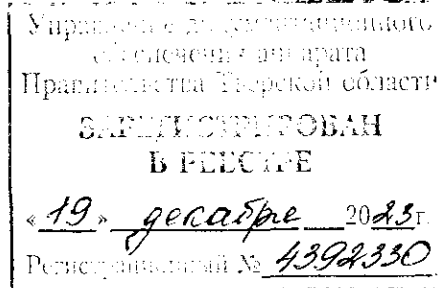 Управление документационного
обеспечения аппарата
Правительства Тверской области
ЗАРЕГИСТРИРОВАН
В РЕЕСТРЕ
«19» декабре 2023г.
Регистрационный № 4392330